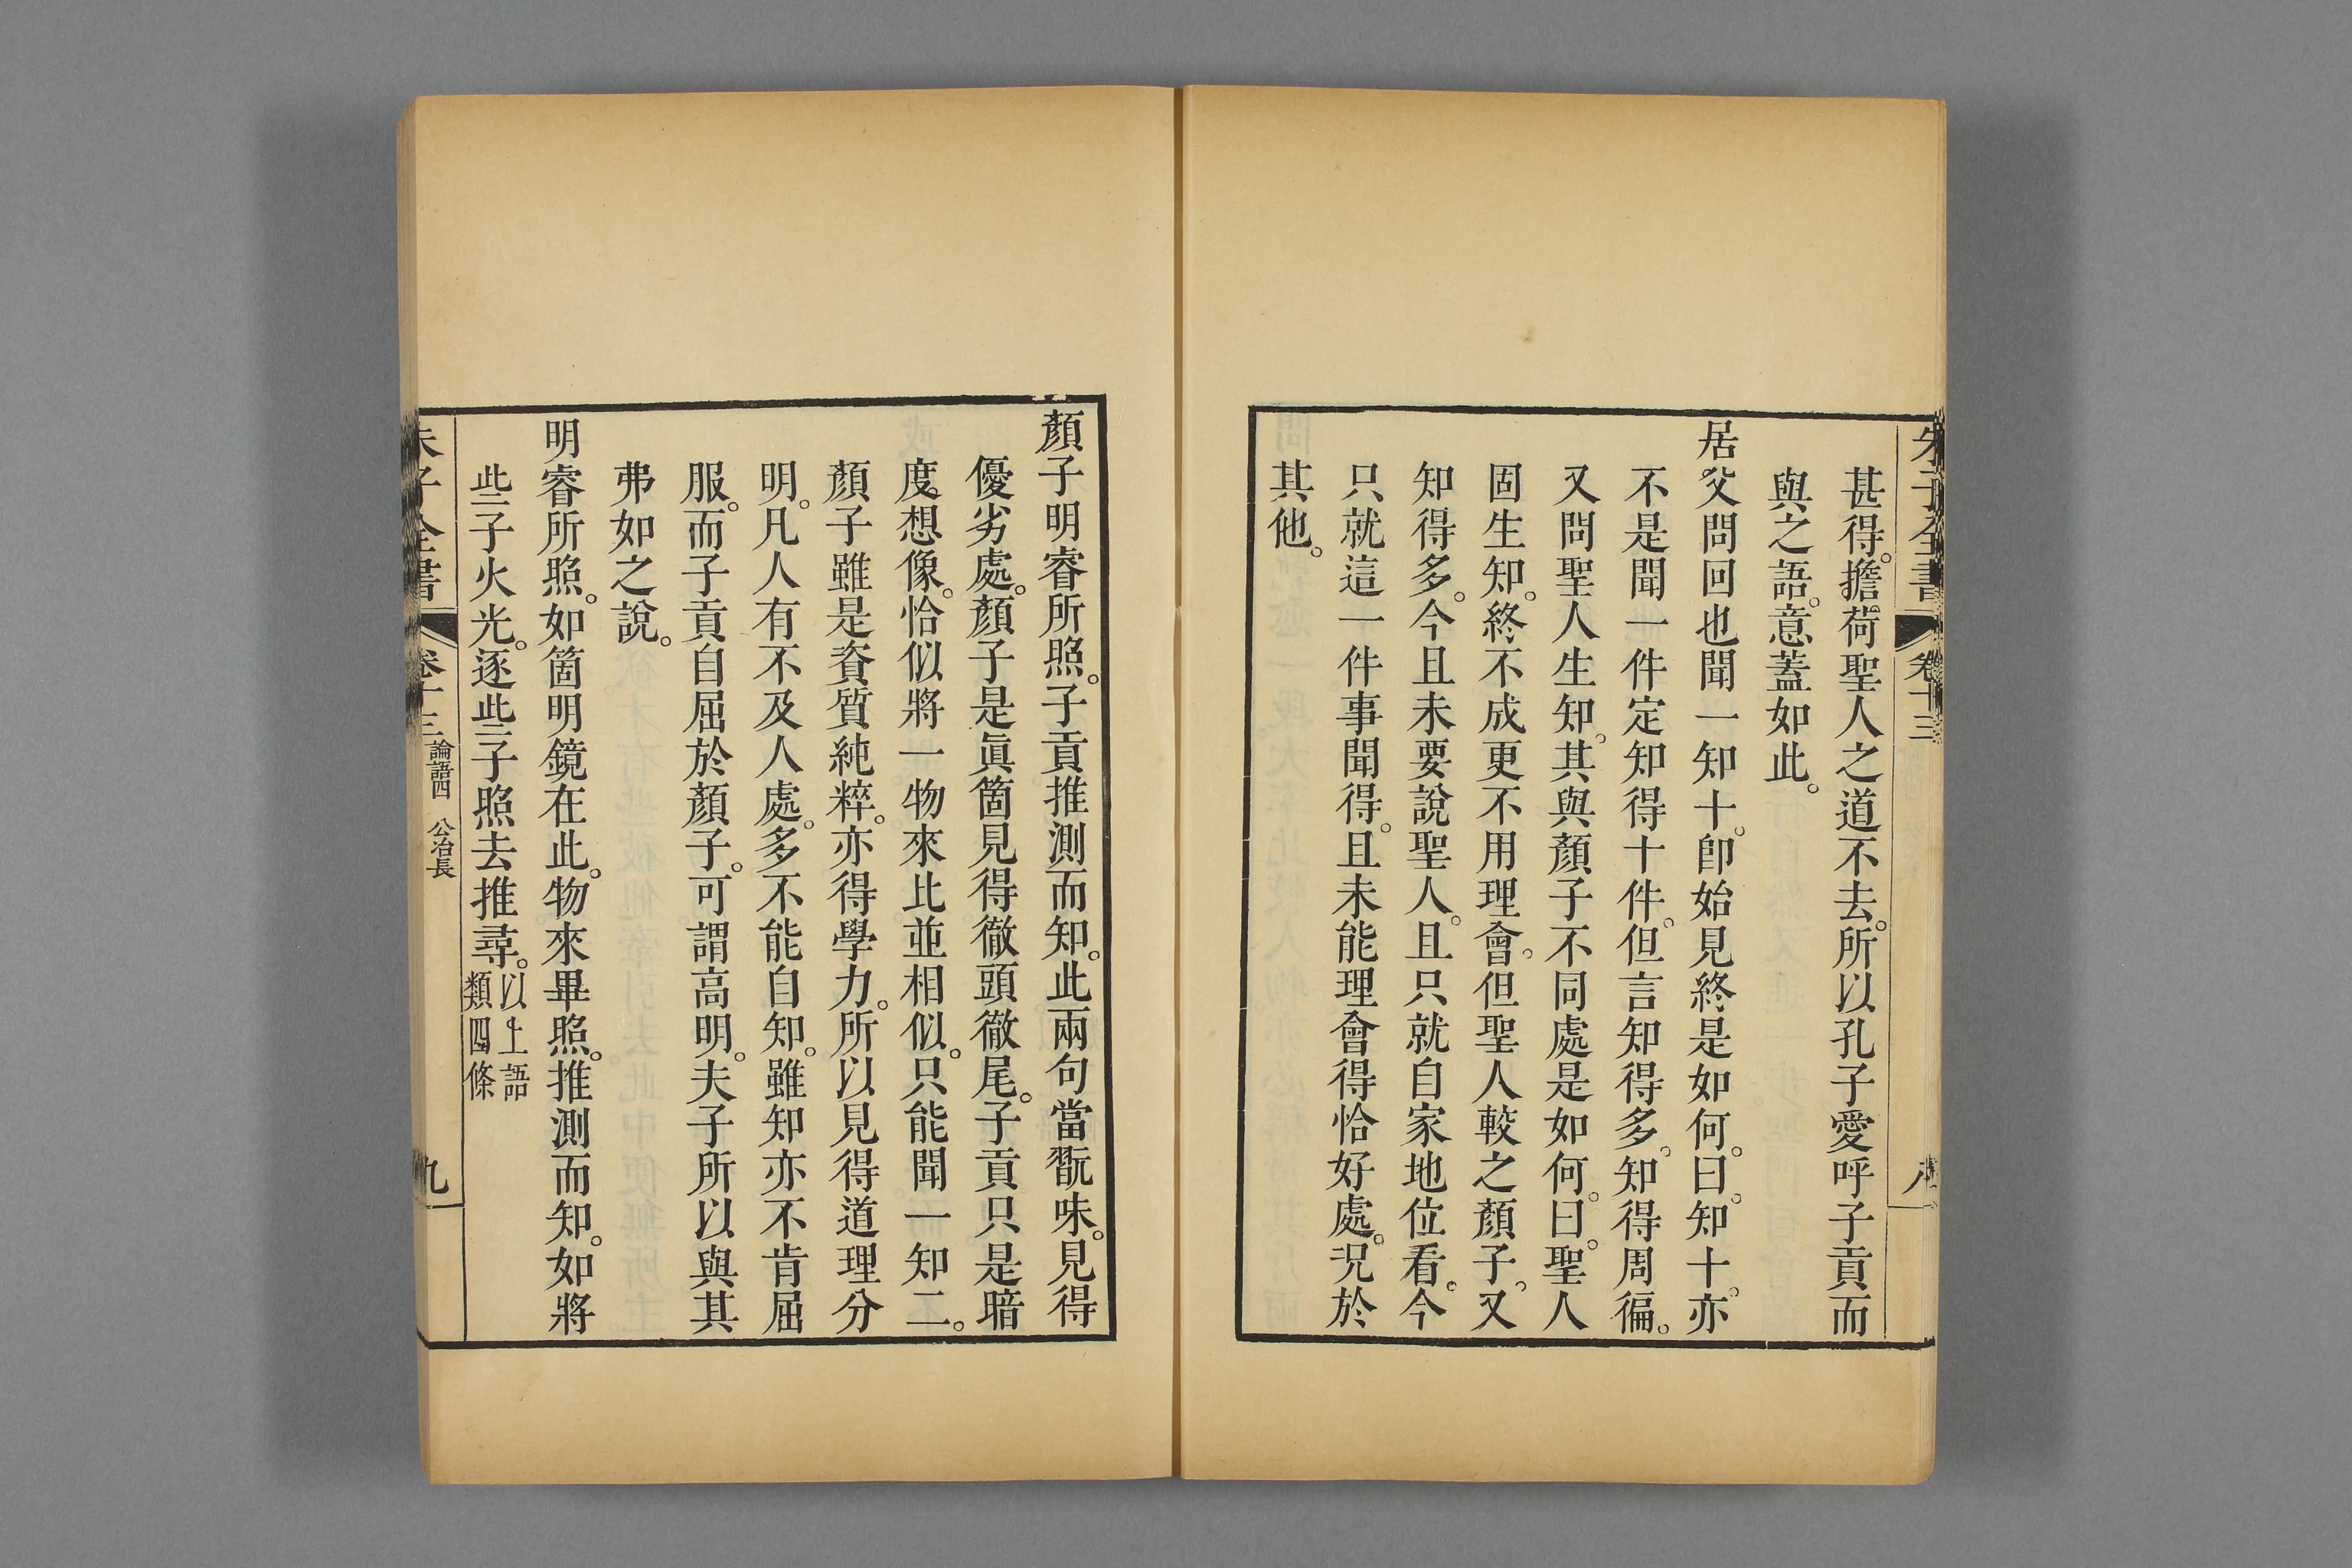 朱子全書 卷十三 八
甚得。擔荷聖人之道不去。所以孔子愛呼子貢而
與之語。意蓋如此。
居父問回也聞一知十。卽始見終是如何。曰。知十。亦
不是聞一件定知得十件。但言知得多。知得周徧。
又問聖人生知。其與顏子不同處是如何。曰。聖人
固生知。終不成更不用理會。但聖人較之顏子。又
知得多。今且未要說聖人。且只就自家地位看。今
只就這一件事聞得。且未能理會得恰好處。況於
其他。
顏子明睿所照。子貢推測而知。此兩句當翫味。見得
優劣處。顏子是眞箇見得徹頭徹尾。子貢只是暗
度想像。恰似將一物來比並相似。只能聞一知二。
顏子雖是資質純粹。亦得學力。所以見得道理分
明。凡人有不及人處。多不能自知。雖知亦不肯屈
服。而子貢自屈於顏子。可謂高明。夫子所以與其
弗如之說。
明睿所照。如箇明鏡在此。物來畢照。推測而知。如將
些子火光。逐些子照去推尋。以上語
類四條
朱子全書 卷十三 論語四 公冶長 九